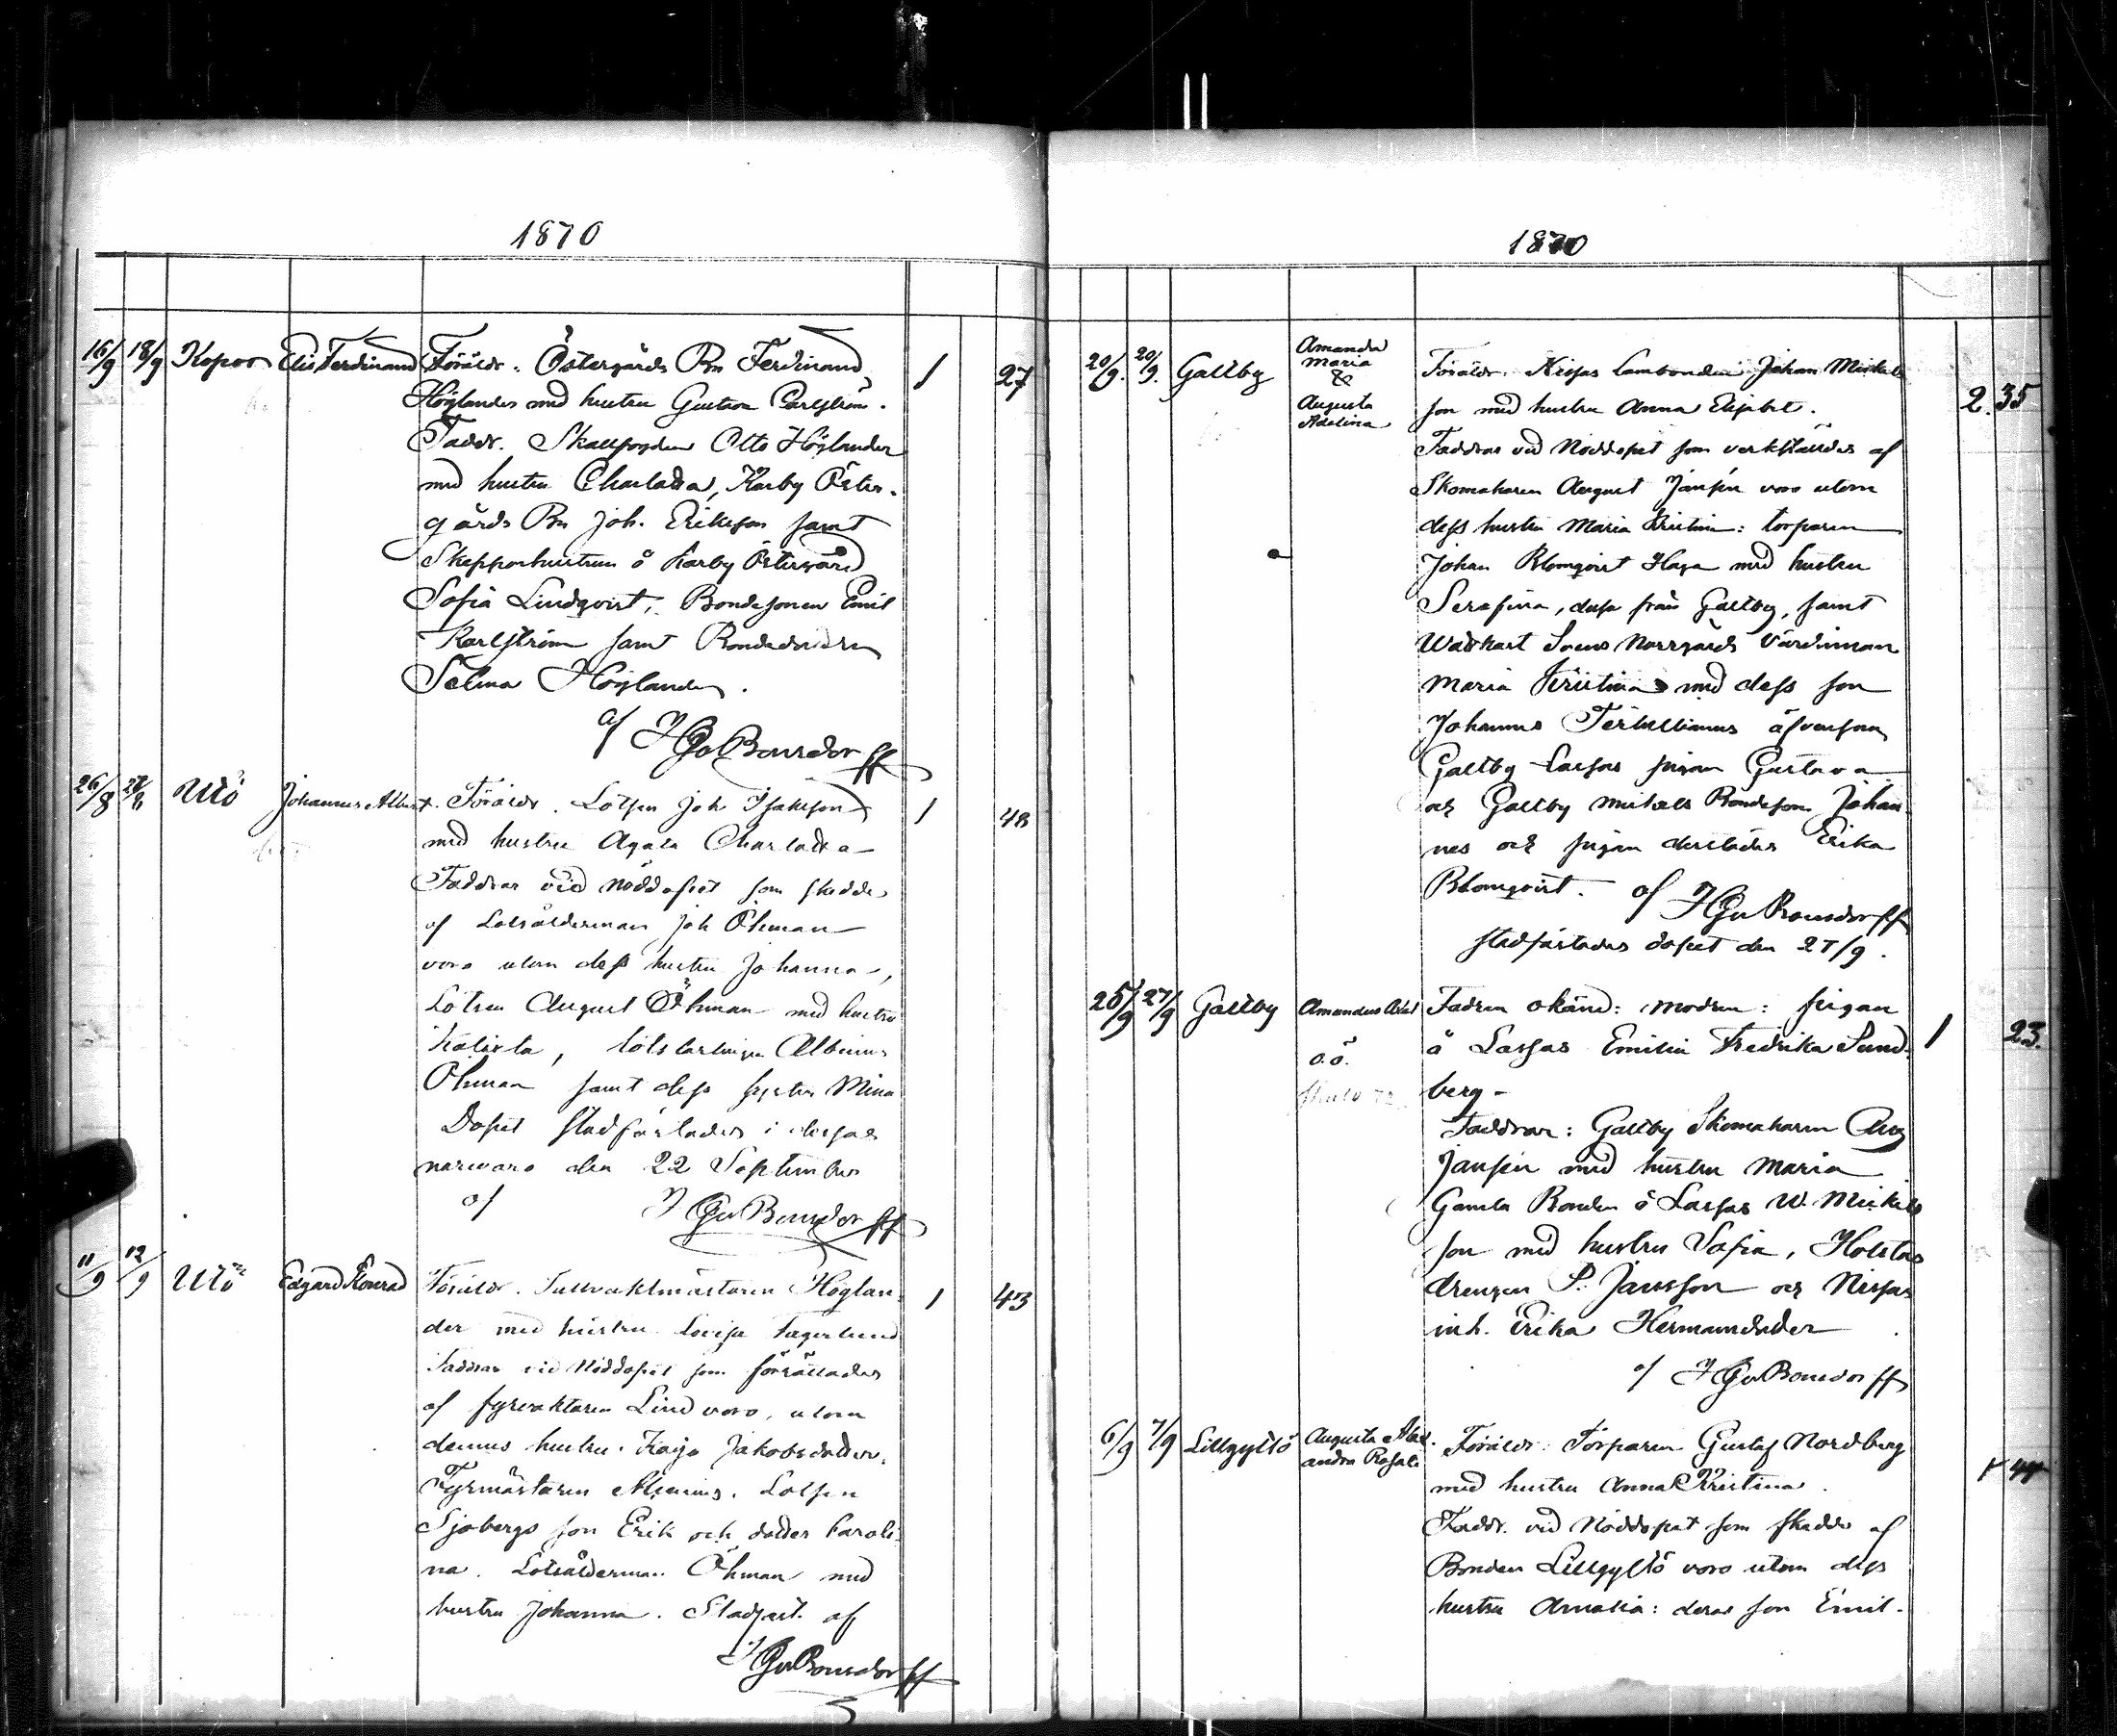 1870
16/9 18/9 Kopoo Elis Ferdinand Föräldr. Östergårds Bn Ferdinand 1 27
Höglander med hustru Gustava Carlström.
Faddr. Skallfogden Otto Höglander
med hustru Charlotta, Karby Öster-
gårds Bn Joh. Erikson samt
Skepparhustrun å Karby Östergård
Sofia Lindqvist, Bondesonen Emil
Karlström samt Bondedottren
Selma Höglander.
af Bonsdorff
26/8 Utö Johannes Albert. Föräldr. Lotsen Joh Isaksson 1 48
med hustru Agata Charlotta
Faddrar vid nöddopet som skedde
af Lotsålderman Joh Öhman
voro utom dess hustru Johanna,
Lotsen August Öhman med hustru
Kalixta, lotslärlingen Albinus
Öhman samt dess syster Mina
Dopet stadfästades i deras
närvaro den 22 September
af Bonsdorff
11/9 12/9 Utö Edgard Konrad Föräldr. Tullvaktmästaren Höglan- 1 43
der med hustru Lovisa Fagerlund
Faddrar vid Nöddopet som förrättades
af fyrvaktaren Lind voro, utom
dennes hustru Kajsa Jakobsdotter,
Fyrmästaren Lotsen
Sjöbergs son Erik och dotter Karoli-
na. Lotsålderman Öhman med
hustru Johanna. Stadfäst. af
Bonsdorff
1870
20/9. 20/9. Galtby Amanda
Maria
&
Augusta
Adelina
Föräldr. Nissas Lambonden Johan Mickels 2. 35
son med hustru Anna Elisabet.
Faddrar vid Nöddopet som verkställdes af
Skomakaren August Jansén voro utom
dess hustru Maria Kristina: torparen
Johan Blomqvist Haga med hustru
Serafina, dessa från Galtby, samt
Wattkast Svens Norrgårds Värdinnan
Maria Kristina med dess son
Johannes äfvensom
Galtby Lassas pigan Gustava
och Galtby Mickels Bondeson Johan-
nes och pigan derstädes Erika
Blomqvist. af Bonsdorff
stadfästades dopet den 27/9.
25/9 27/9 Galtby Amandus Axel Fadren okänd: modren: pigan
o.ä. å Lassas Emilia Fredrika Sund- 1 23.
berg-
Faddrar: Galtby Skomakaren Aug
Jansén med hustru Maria
Gamla Bonden å Lassas W. Mickels
son med hustru Sofia, Holstas
drengen P. Jansson och Nissas
inh. Erika Hermansdotter
af Bonsdorff
6/9 7/9 Lillgyltö Augusta Alex-
andra Rosali Föräldr: Torparen Gustaf Nordberg 1 44
med hustru Anna Kristina.
Faddr. vid Nöddopet som skedde af
Bonden Lillgyltö voro utom dess
hustru Amalia: deras son Emil.